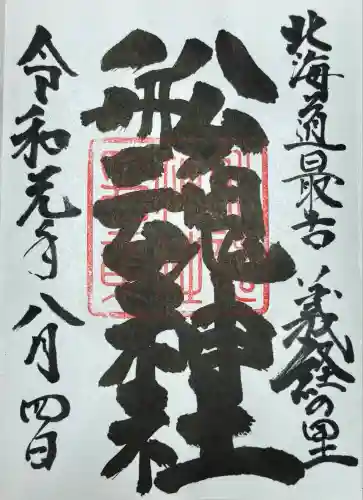 北海道最古 義経の里
舩魂神社
令和元年八月四日